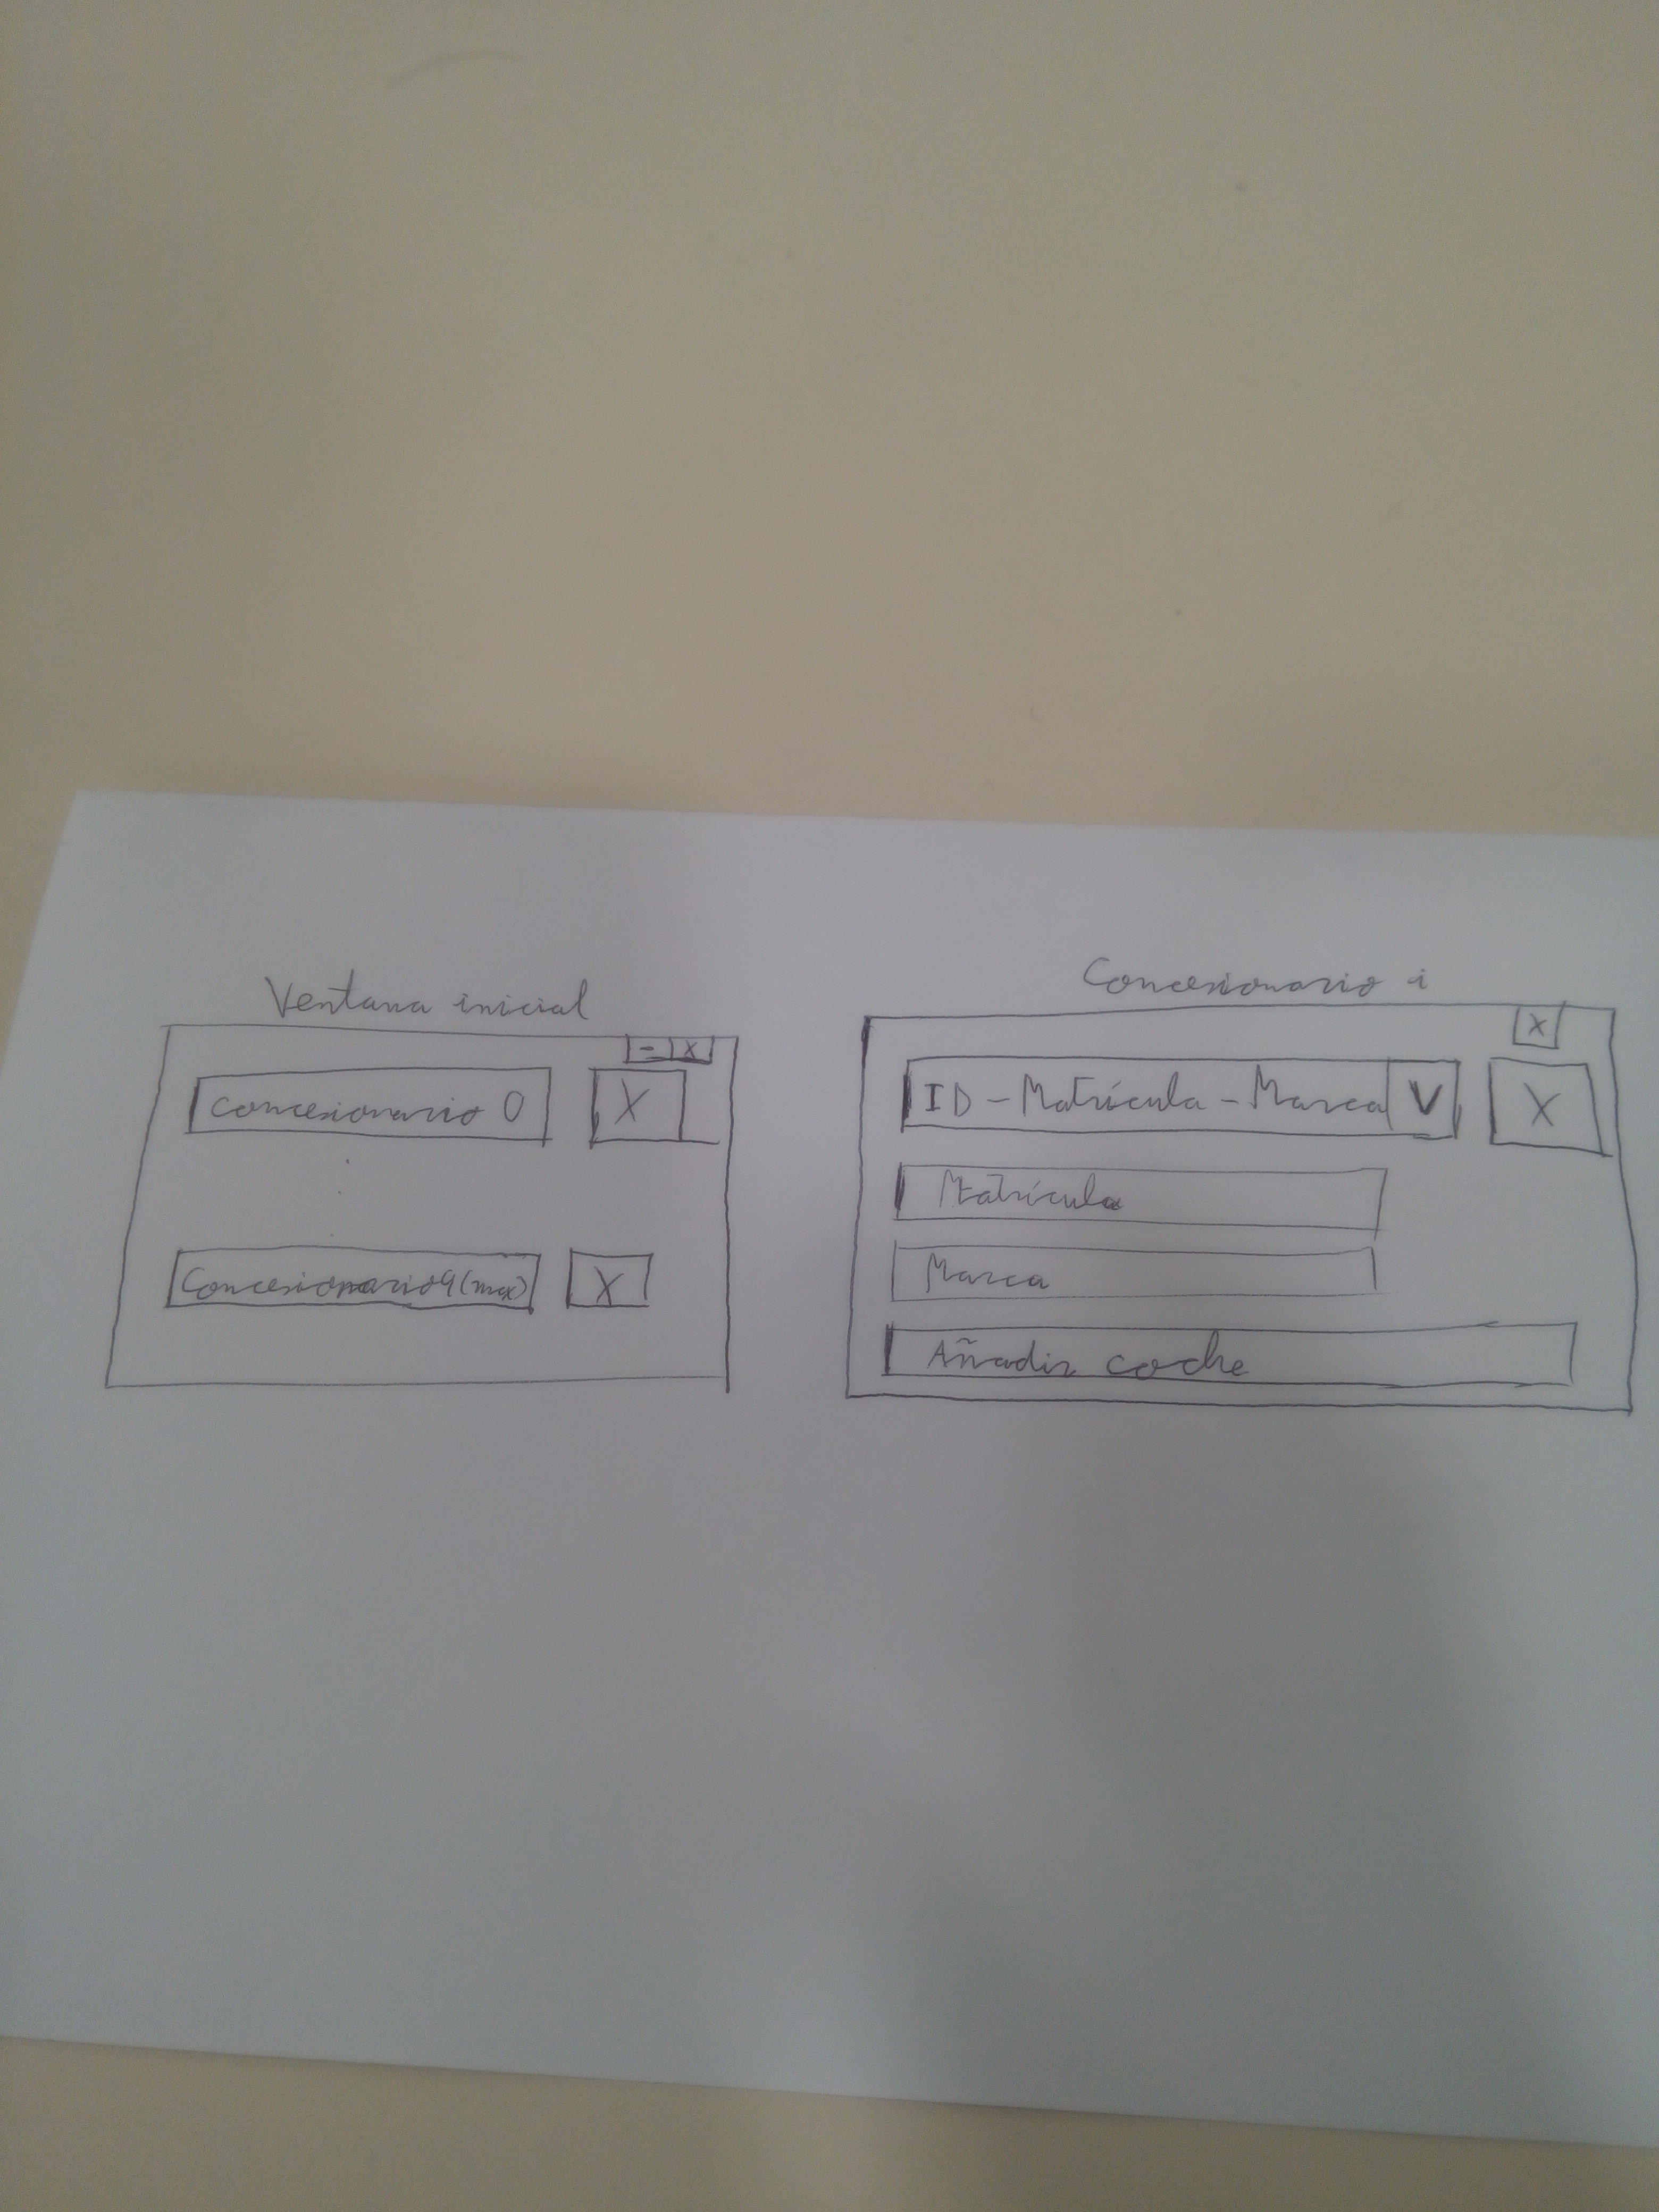 Ventana inicial
- X
concesionario 0 X
Concesionario 9 (max) X
Concesionario i
X
ID - Matrícula - Marca V X
Matrícula
Marca
Añadir coche